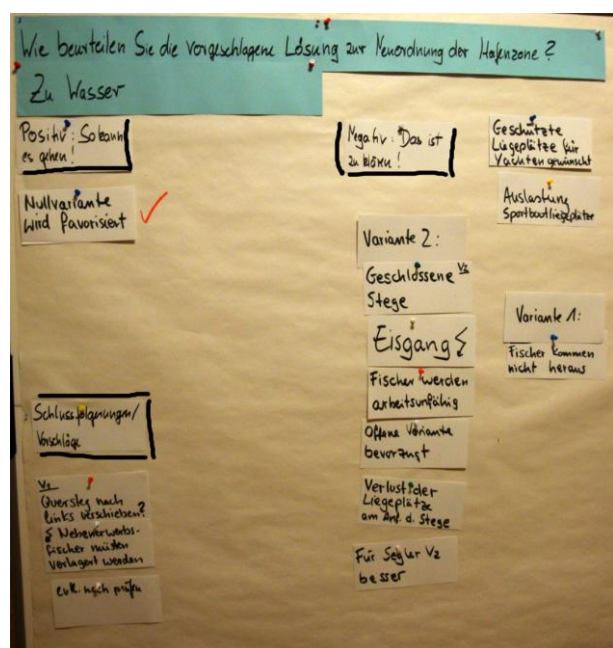 Wie beurteilen Sie die vorgeschlagene Lösung zur Neuordnung der Hafenzone?
Zu Wasser
Positiv: So kann
es gehen!
Nullvariante
wird favorisiert
Schlussfolgerungen/
Vorschläge
V2
Quersteg nach
links verschieben?
5 Nebenerwerbs-
fischer müßten
verlagert werden
evtl. noch prüfen
Negativ: Das ist
zu klären!
Variante 2:
Geschlossene V2
Stege
Eisgang
Fischer werden
arbeitsunfähig
Offene Variante
bevorzugt
Verlust der
Liegeplätze
am Anf. d. Stege
Für Segler V2
besser
Geschützte
Liegeplätze für
Yachten gewünscht
Auslastung
Sportbootliegeplätze
Variante 1:
Fischer kommen
nicht heraus